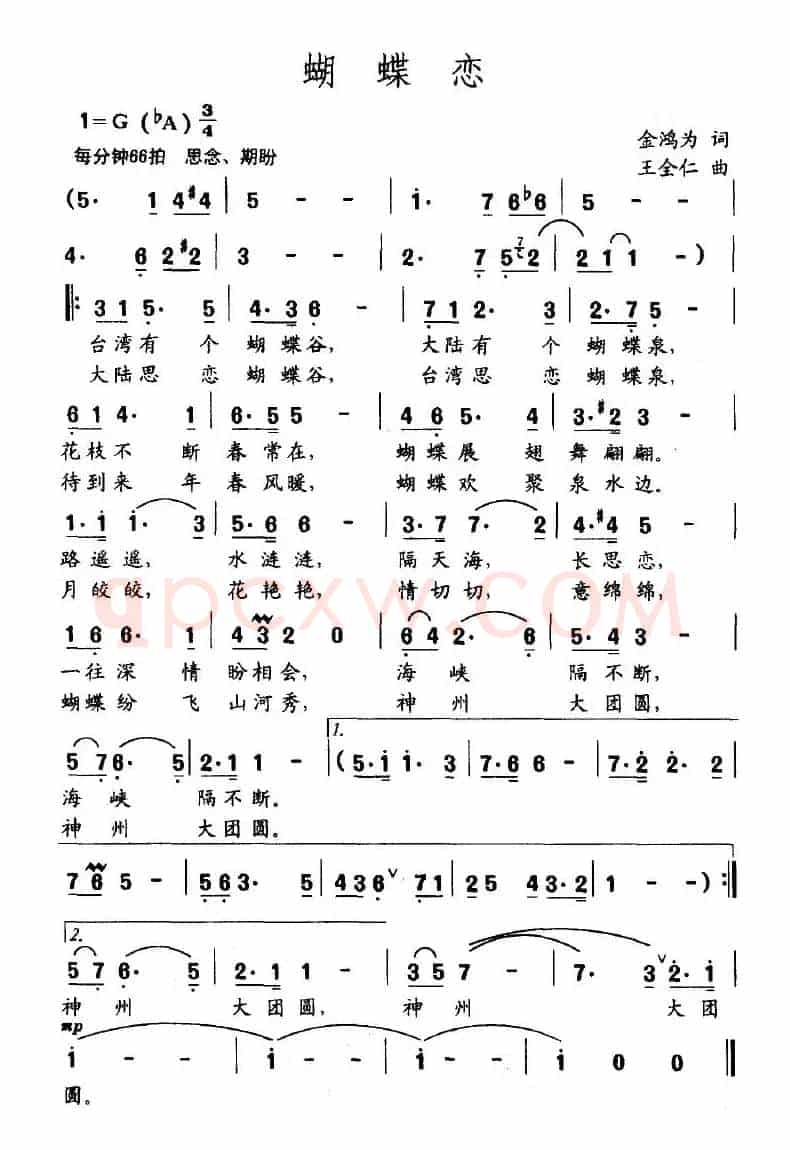 蝴 蝶 恋
1=G (♭A) 3/4
金鸿为 词
每分钟66拍 思念、期盼
王全仁 曲
(5· 1 4 #4 | 5 - - | i· 7 6 ♭6 | 5 - - |
4· 6 2 #2 | 3 - - | 2· 7 5 2 | 2 1 1 -) |
|: 3 1 5· 5 | 4· 3 6 - | 7 1 2· 3 | 2· 7 5 - |
台湾有 个 蝴 蝶谷, 大陆有 个 蝴 蝶泉,
大陆思 恋 蝴蝶谷, 台湾思 恋 蝴蝶泉,
6 1 4· 1 | 6· 5 5 - | 4 6 5· 4 | 3· #2 3 - |
花枝不 断 春 常在, 蝴蝶展 翅 舞 翩翩。
待到来 年 春风暖, 蝴蝶欢 聚 泉水边。
i· i i· 3 | 5· 6 6 - | 3· 7 7· 2 | 4· #4 5 - |
路遥遥, 水 涟涟, 隔天海, 长思恋,
月皎皎, 花艳艳, 情切切, 意绵绵,
qpcxw.com
1 6 6· 1 | 4 3 2 0 | 6 4 2· 6 | 5· 4 3 - |
一往深 情 盼相会, 海 峡 隔不断,
蝴蝶纷 飞 山河秀, 神 州 大团圆,
1.
5 7 6· 5 | 2· 1 1 - | (5· i i· 3 | 7· 6 6 - | 7· 2 2· 2 |
海 峡 隔不断。
神 州 大团圆。
7 6 5 - | 5 6 3· 5 | 4 3 6 ∨ 7 1 | 2 5 4 3· 2 | 1 - -) :|
2.
5 7 6· 5 | 2· 1 1 - | 3 5 7 - | 7· 3 ∨ 2· i |
神 州 大团圆, 神 州 大团
mp
i - - | i - - | i - - | i 0 0 |
圆。